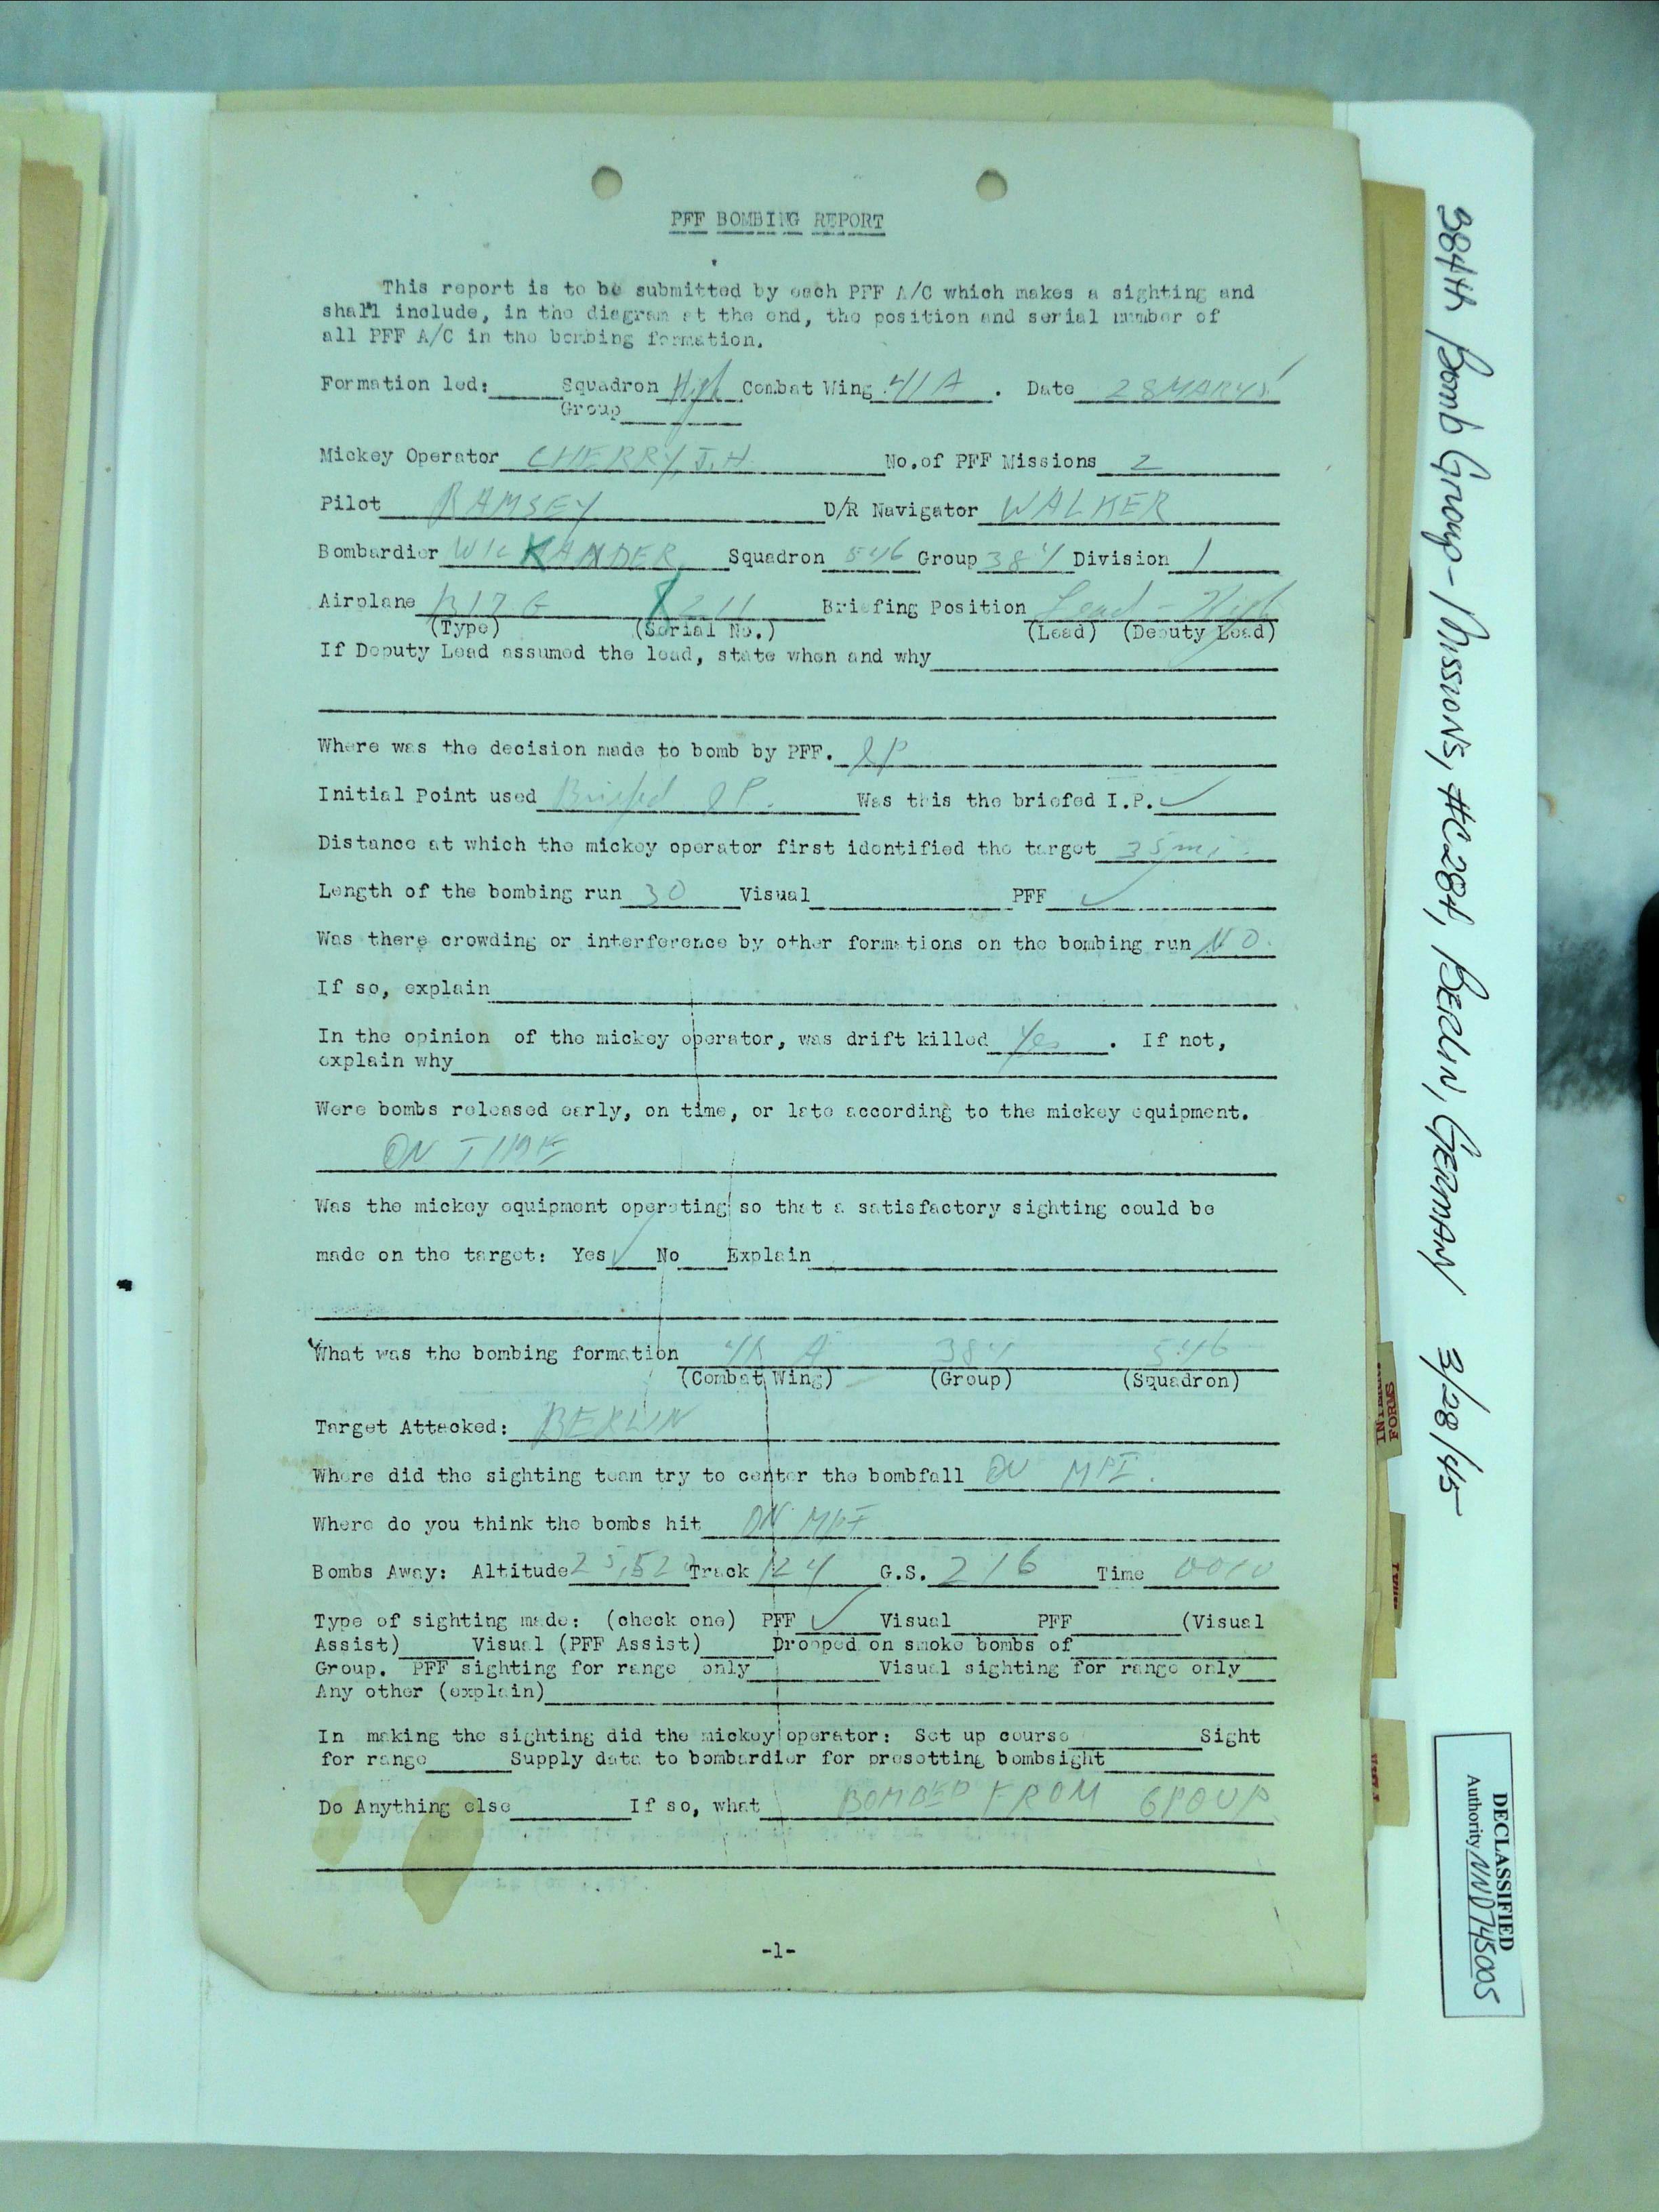 PFF BOMBING REPORT
This report is to be submitted by each PFF A/C which makes a sighting and
shall include, in the diagram at the end, the position and serial number of
all PFF A/C in the bombing formation.
Formation led: Squadron High Combat Wing 41 A . Date 28 MAR 45
Group
Mickey Operator CHERRY, J.H. No.of PFF Missions 2
Pilot RAMSEY D/R Navigator WALKER
Bombardier WICKANDER Squadron 546 Group 384 Division 1
Airplane B17 G 8211 Briefing Position Lead - High
(Type) (Serial No.) (Lead) (Deputy Lead)
If Deputy Lead assumed the lead, state when and why
Where was the decision made to bomb by PFF. IP
Initial Point used Briefed IP. Was this the briefed I.P. ✓
Distance at which the mickey operator first identified the target 35 mi.
Length of the bombing run 30 Visual PFF ✓
Was there crowding or interference by other formations on the bombing run NO.
If so, explain
In the opinion of the mickey operator, was drift killed Yes . If not,
explain why
Were bombs released early, on time, or late according to the mickey equipment.
ON TIME
Was the mickey equipment operating so that a satisfactory sighting could be
made on the target: Yes ✓ No Explain
What was the bombing formation 41 A 384 546
(Combat Wing) (Group) (Squadron)
Target Attacked: BERLIN
Where did the sighting team try to center the bombfall ON MPI.
Where do you think the bombs hit ON MPI
Bombs Away: Altitude Track 124 G.S. 216 Time
Type of sighting made: (check one) PFF ✓ Visual PFF (Visual
Assist) Visual (PFF Assist) Dropped on smoke bombs of
Group. PFF sighting for range only Visual sighting for range only
Any other (explain)
In making the sighting did the mickey operator: Set up course Sight
for range Supply data to bombardier for presetting bombsight
Do Anything else If so, what BOMBED FROM GROUP
-1-
384th Bomb Group - Missions, #C284, BERLIN, GERMANY 3/28/45
DECLASSIFIED
Authority NND745005
FORMS